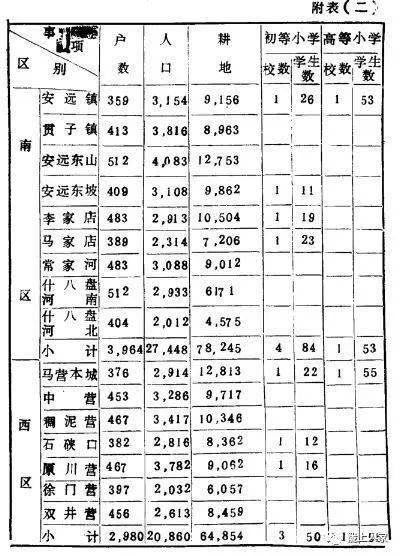 附表(二)
事 项 户数 人口 耕地 初等小学 高等小学
区 别 校数 学生数 校数 学生数
南区
安远镇 359 3,154 9,156 1 26 1 53
贯子镇 413 3,816 8,963
安远东山 512 4,083 12,753
安远东坡 409 3,108 9,862 1 11
李家店 483 2,913 10,504 1 19
马家店 389 2,314 7,206 1 23
常家河 483 3,088 9,012
什八盘河南 512 2,933 6171
什八盘河北 404 2,012 4,575
小计 3,964 27,448 78,245 4 84 1 53
西区
马营本城 376 2,914 12,813 1 22 1 55
中营 453 3,286 9,717
稠泥营 467 3,417 10,346
石硖口 382 2,816 8,362 1 12
原川营 467 3,782 9,062 1 16
徐门营 397 2,032 6,057
双井营 456 2,613 8,459
小计 2,980 20,860 64,854 3 50 1